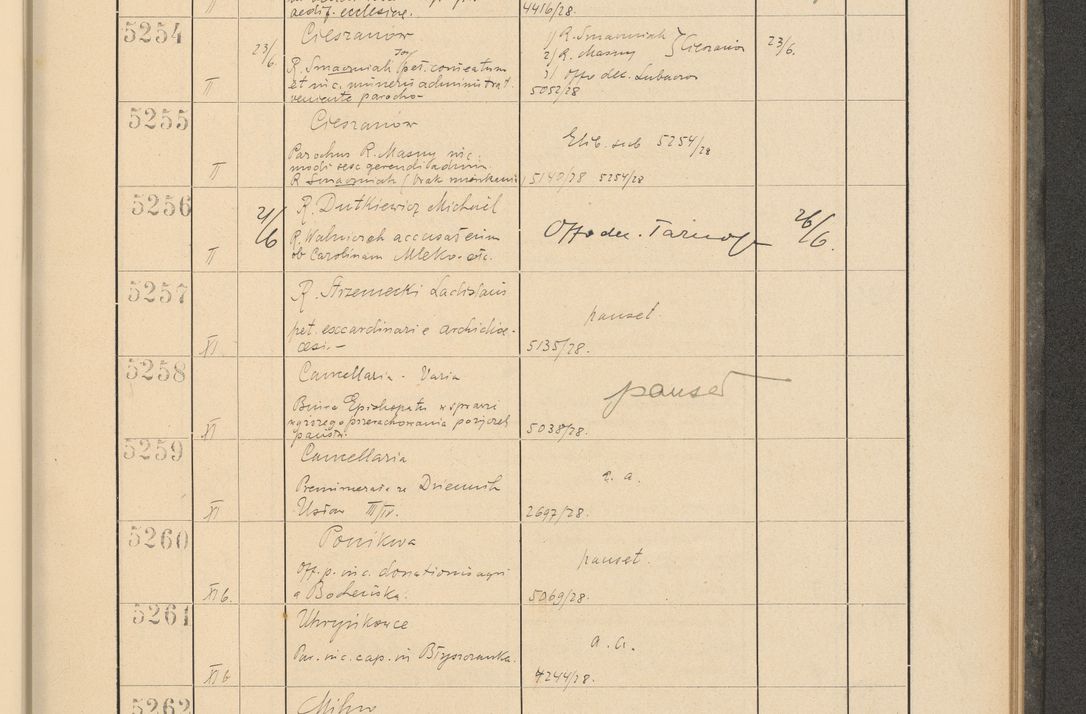 II
aedif. ecclesiae.
4416/28.
5254
23/6.
II
Cieszanów
R. Smaczniak pet. comeatum
et vic. muneris administrat.
veniente parocho
1/ R. Smaczniak
2/ R. Masny } Cieszanów
3/ Offo dec. Lubaczow
5052/28
23/6.
5255
II
Cieszanów
Parochus R. Masny vic.
modi sese gerendi adum.
R. Smaczniak (brak mieszkania)
Elib. sub 5254/28
5140/28 5254/28
5256
II
21/6
R. Dutkiewicz Michaël
R. Walniczek
ob Carolinam Mleko etc.
Offo dec. Tarnop
26/6.
5257
XI.
R. Strzemecki Ladislaus
pet. excardinari e archidioe-
cesi. —
pauset.
5135/28.
5258
XI
Cancellaria - Varia
Biura Episkopatu w sprawie
przerachowania pożyczek
państw.
pauset
5038/28.
5259
XI
Cancellaria
Prenumerata za Dziennik
Ustaw III/IV.
a. a.
2697/28.
5260
XI b.
Ponikwa
Off. p. vic. donationis agri
a Bocheńska.
pauset.
5069/28.
5261
XI b
Uhryńkowce
Par. vic. cap. in
a. a.
4244/28.
5262
Milno